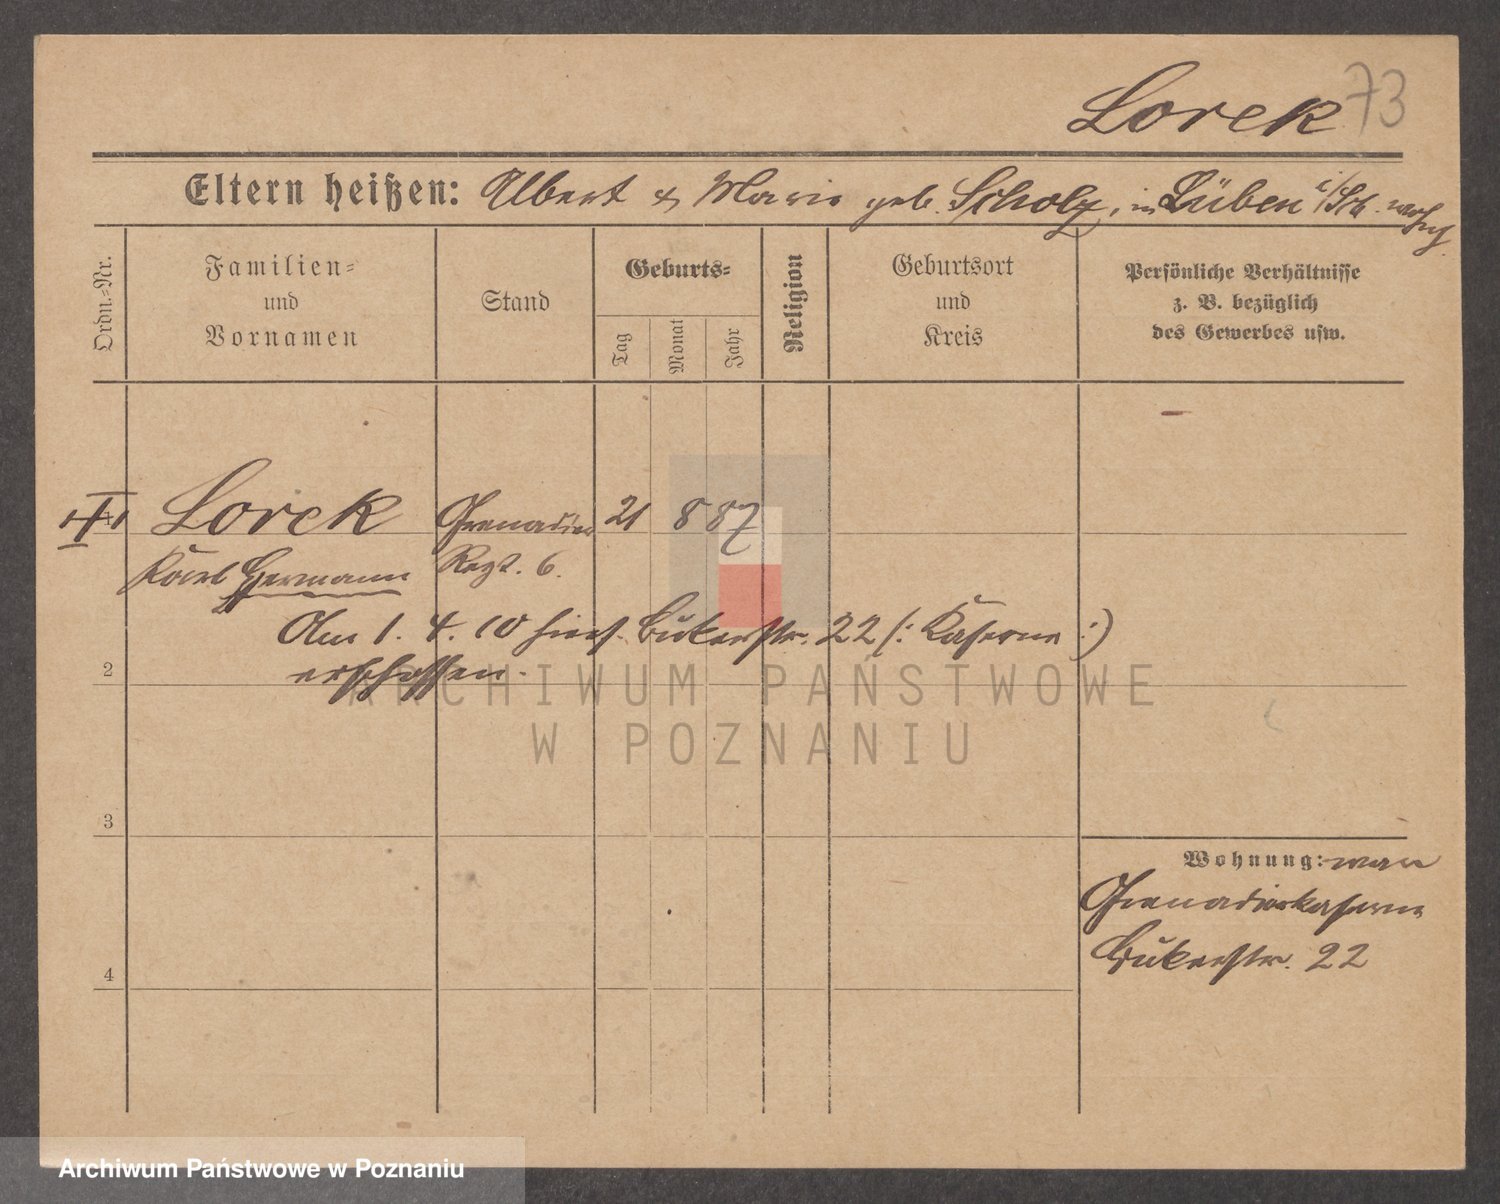 Lorek 73
Eltern heißen: Albert & Marie geb. Scholz, in Lüben i/Sch. wohnh.
Ordn.-Nr.
Familien-
und
Vornamen
Stand
Geburts-
Tag
Monat
Jahr
Religion
Geburtsort
und
Kreis
Persönliche Verhältnisse
z. B. bezüglich
des Gewerbes usw.
Lorek Grenadier 21 8 87
Karl Hermann Regt. 6.
Am 1. 4. 10 hiers. Bukerstr. 22 (: Kaserne :)
2
erschossen.
ARCHIWUM PAŃSTWOWE
W POZNANIU
3
Wohnung: war
Grenadierkaserne
Bukerstr. 22
4
Archiwum Państwowe w Poznaniu